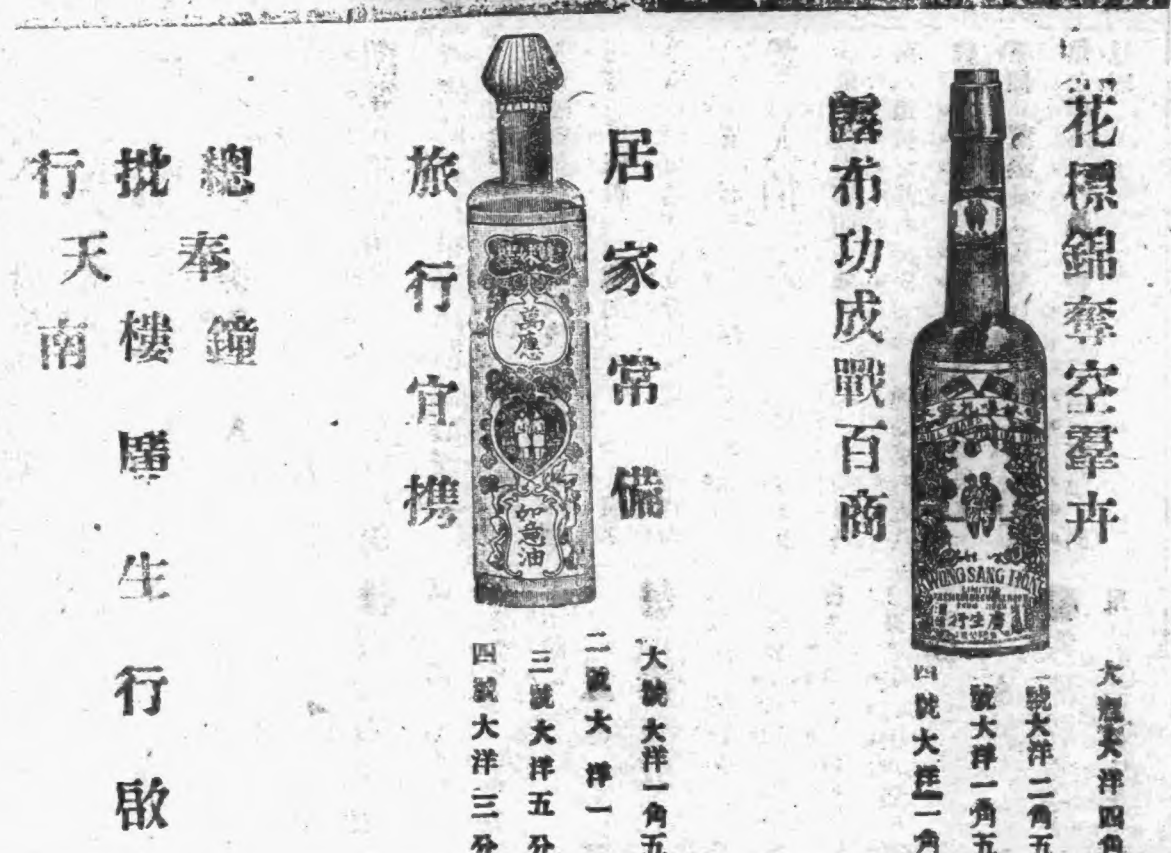 花標錦奪空羣卉
露布功成戰百商
KWONG SANG HONG
LIMITED
廣生行
大瓶大洋四角
號大洋二角五
號大洋一角五
四號大洋一角
居家常備
旅行宜攜
萬應
如意油
大號大洋一角五
二號大洋一
三號大洋五分
四號大洋三分
總批行
奉天
鐘樓南
廣生行啟